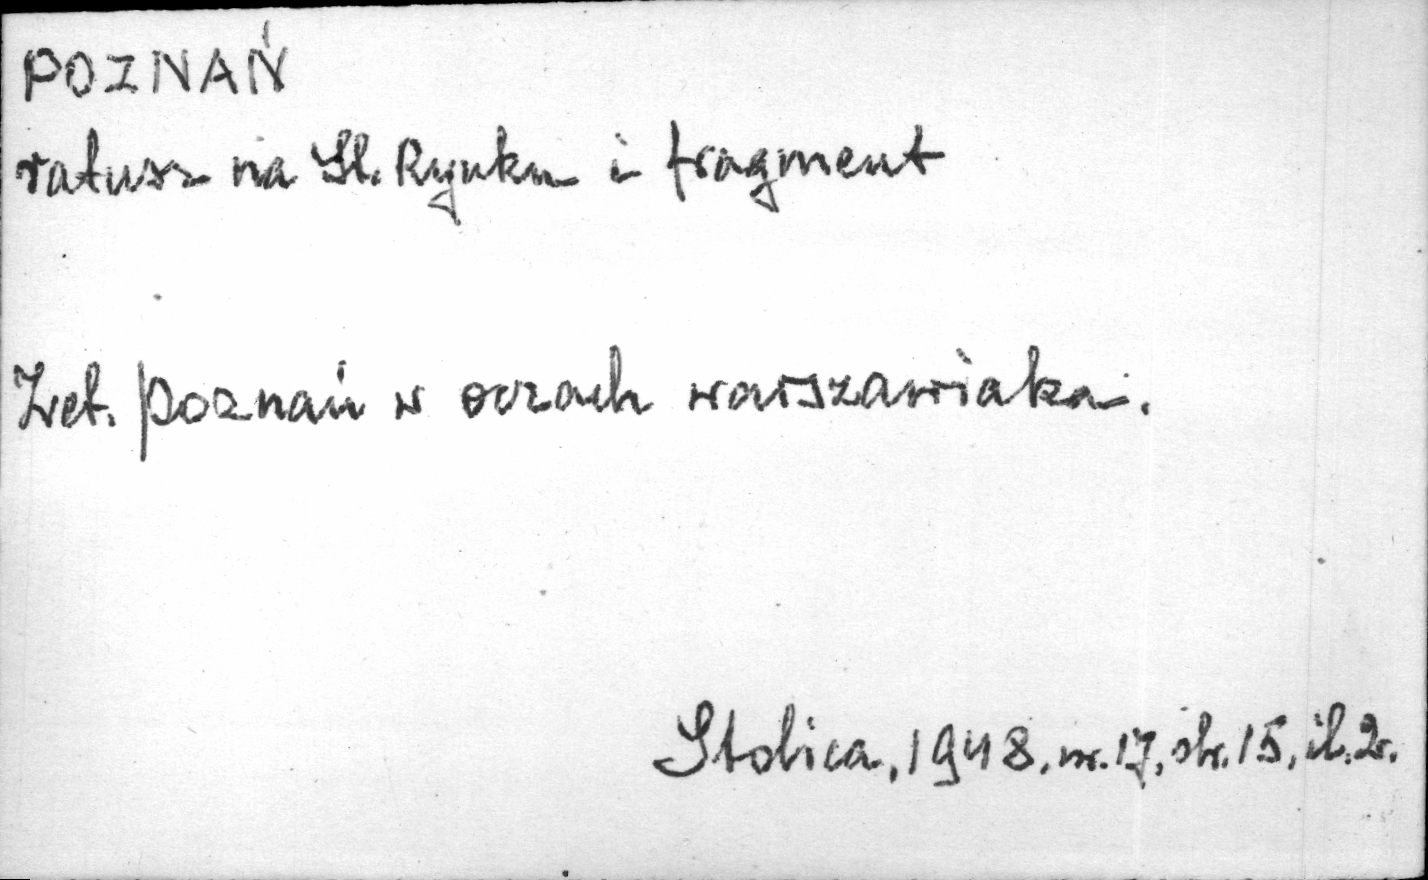 POZNAŃ
ratusz na St. Rynku i fragment
Zwt. Poznań w oczach warszawiaka.
Stolica, 1948, nr. 17, str. 15, il. 2.